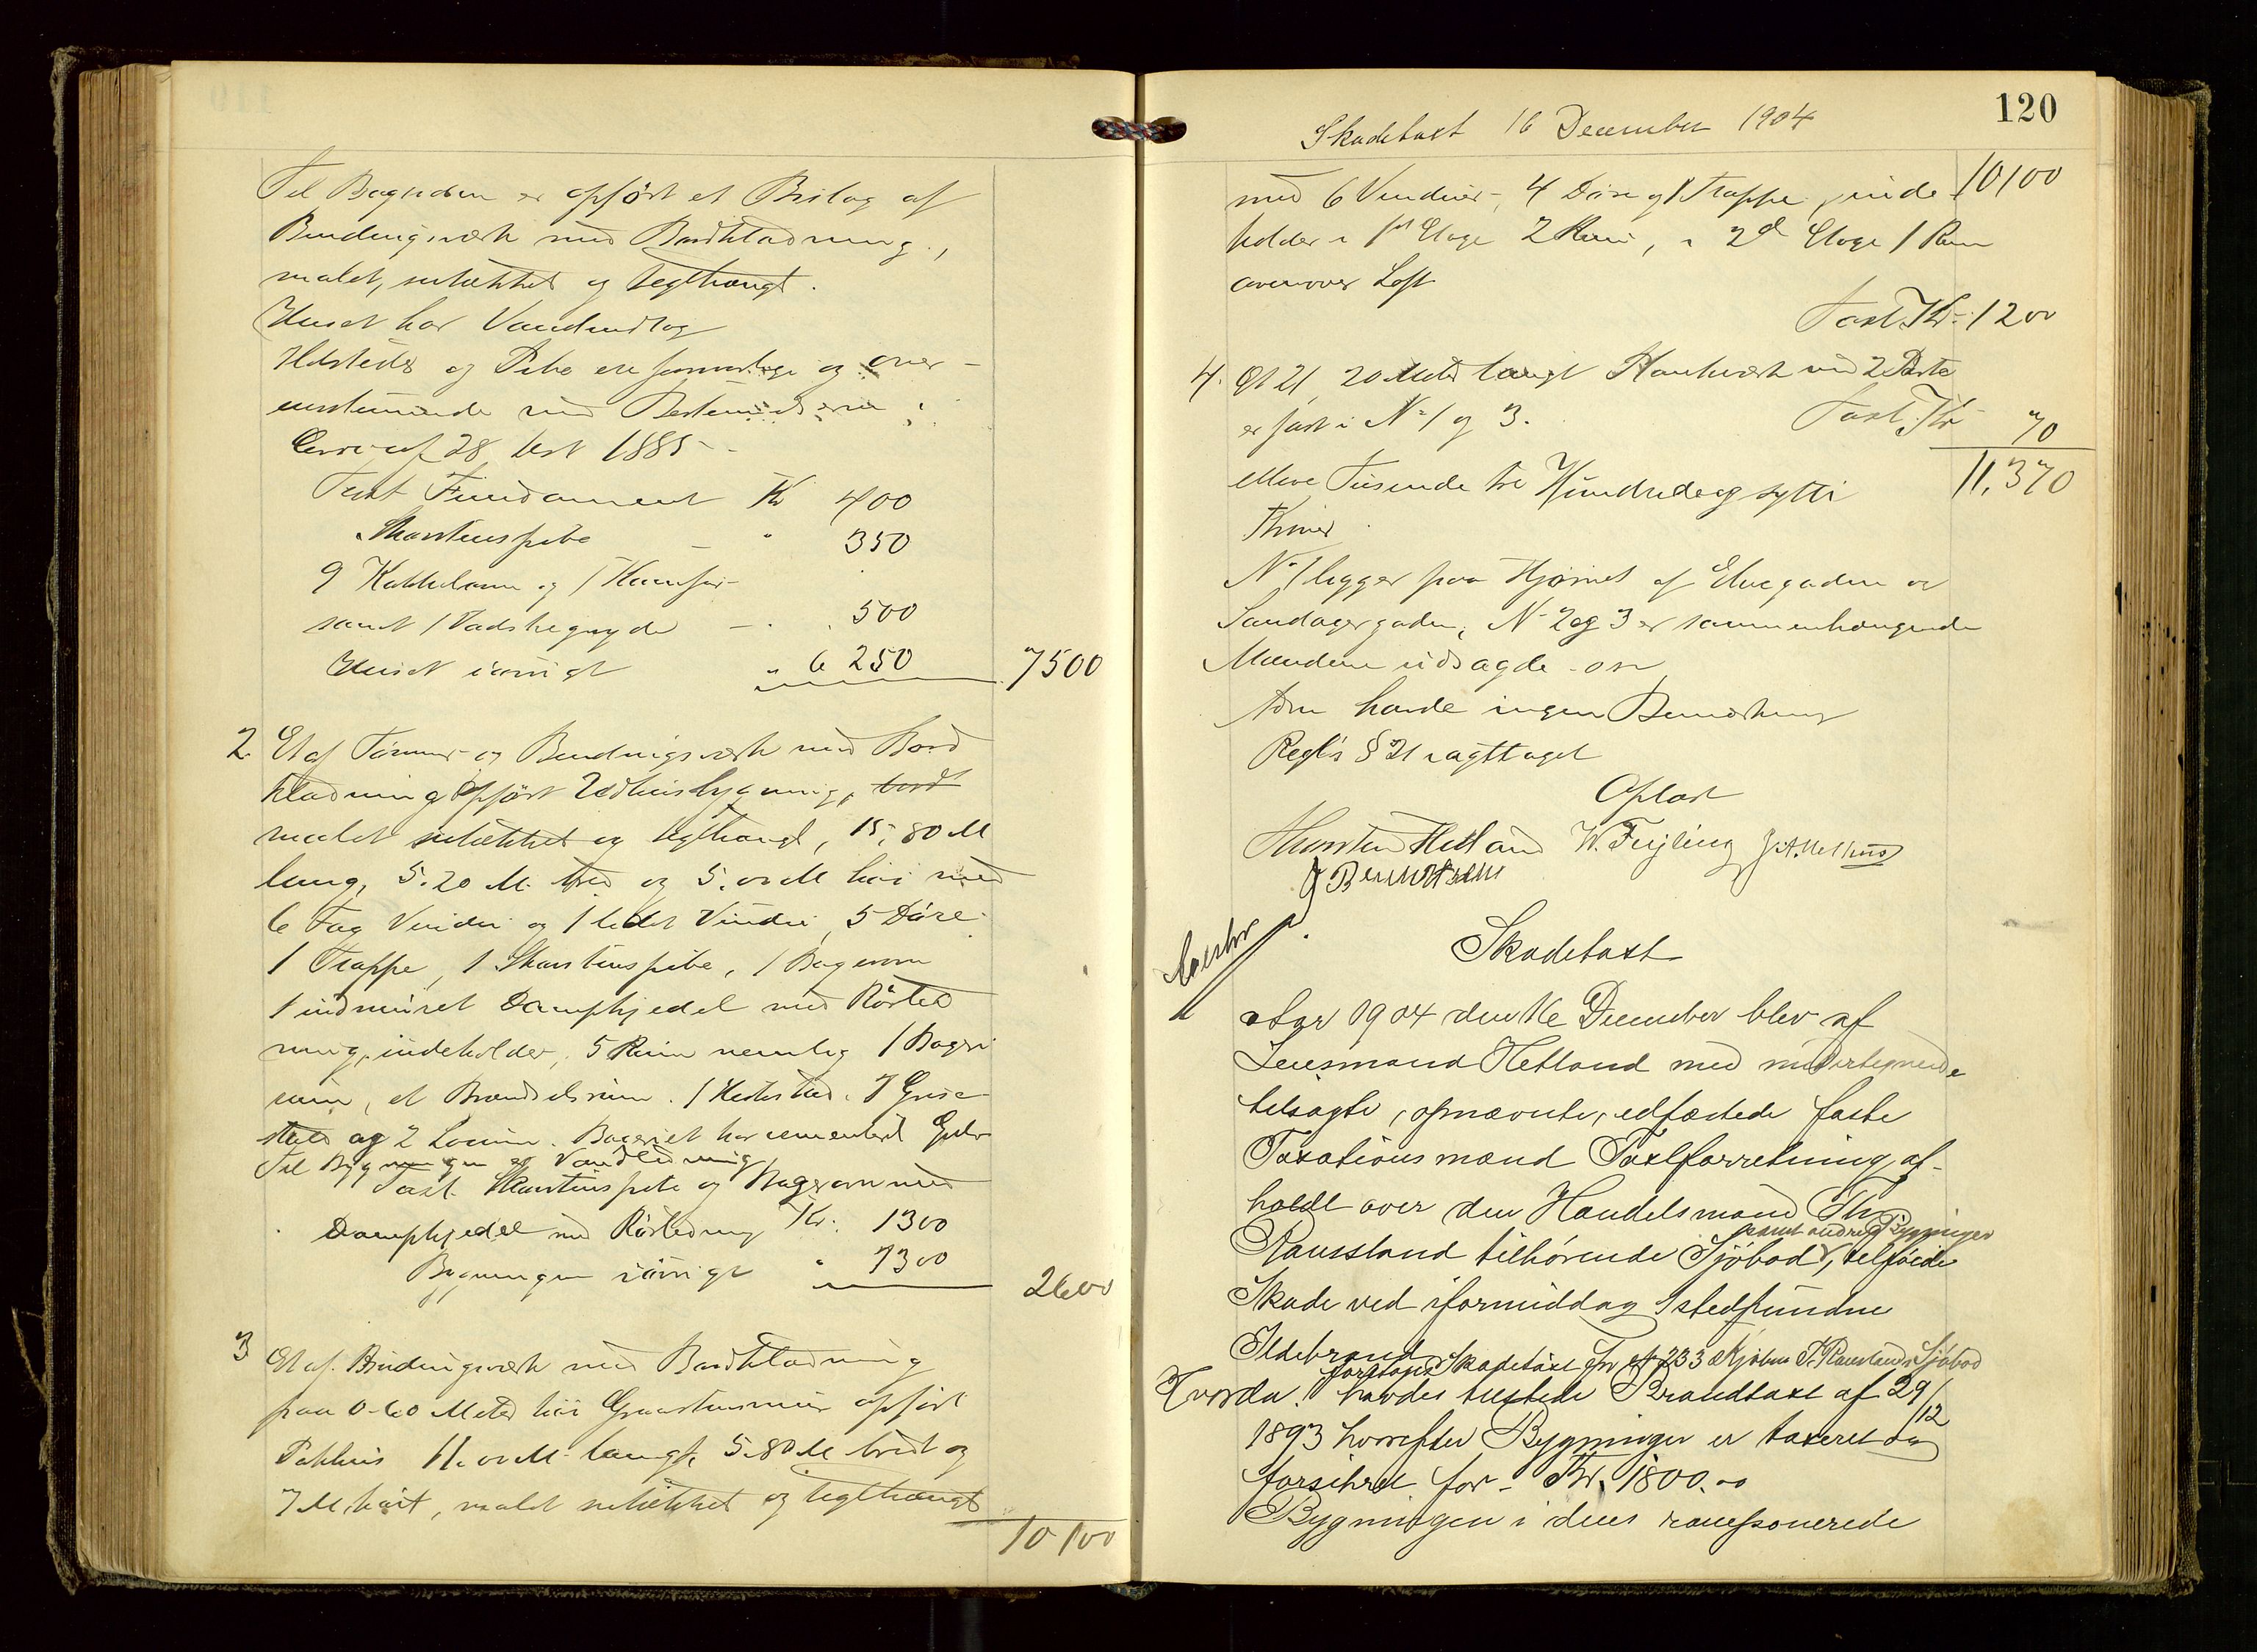 Til Bagsiden er opført et Bislag af
Bindingsværk med Bordklædning,
malet, sutækket og teglhængt.
Huset har Vandindlæg
Ildsteder og Pibe ere forsvarlige og over-
ensstemmende med Bestemmelserne i
Circ af 28 1885
Taxt Fundament Kr 400
Skorstenspibe " 350
9 Kakkelovne og 1 Komfur
samt 1 Vadskegryde - " 500
Huset iøvrigt " 6 250 7500
2. Et af Tømmer og Bindingsværk med Bord
klædning opført Udhusbygning, bord
malet sutækket og teglhængt, 15,80 M
lang, 5.20 M. bred og 5.00 M høi med
6 Fag Vinduer og 1 ledet Vindu, 5 Døre
1 Trappe, 1 Skorstenspibe, 1 Bagerovn
1 indmuret Dampkjedel med Rørled
ning, indeholder, 5 Rum nemlig 1 Bageri
rum, et Brændselsrum. 1 Hestestald. 1 Grise
stald og 2 Locum. Bageriet har cementeret Gulv
Til Bygningen er Vandledning
Taxt. Skorstenspibe og Bagerovn med
Dampkjedel med Rørledning Kr. 1300
Bygningen iøvrigt " 1300 2600
3 Et af Bindingsværk med Bordklædning
paa 0.60 Meter høi Graastensmur opført
Pakhus 11.00 M langt, 5.80 M bredt og
7 M. høit, malet sutækket og teglhængt
10 100
120
Skadetaxt 16 December 1904
med 6 Vinduer, 4 Døre og 1 Trappe, inde- 10100
holder i 1st Etage 2 Rum, i 2d Etage 1 Rum
ovenover Loft
Taxt Kr. 1200
4. Et 21,20 Meter langt Plankeværk med 2 Porte
er fæst i No 1 og 3. Taxt. Kr 70
elleve Tusende tre Hundrede og sytti 11,370
Kroner
No 1 ligger paa Hjørnet af Elvegaden og
Sandagergaden, No 2 og 3 er sammenhængende
Mændene udsagde - osv
havde ingen Bemærkning
Regl's § 21 iagttaget
Oplæst
Thorsten Hetland W. Feyling J.A. Melhus
J Berentsen
Skadetaxt
Aar 1904 den 16 December blev af
Lensmand Hetland med undertegnede
tilsagte, opnævnte, edfæstede faste
Taxationsmænd Taxtforretning af-
holdt over den Handelsmand Th
samt andre Bygninger
Rausland tilhørende Sjøbod, tilføiede
Skade ved iformiddag stedfundne
Ildebrand. Skadetaxt No 233 Rauslands Sjøbod
Hvorda. havdes tilstede Brandtaxt af 29/12
1893 hvorefter Bygningen er taxeret og
forsikret for - Kr. 1800.00
Bygningen i dens